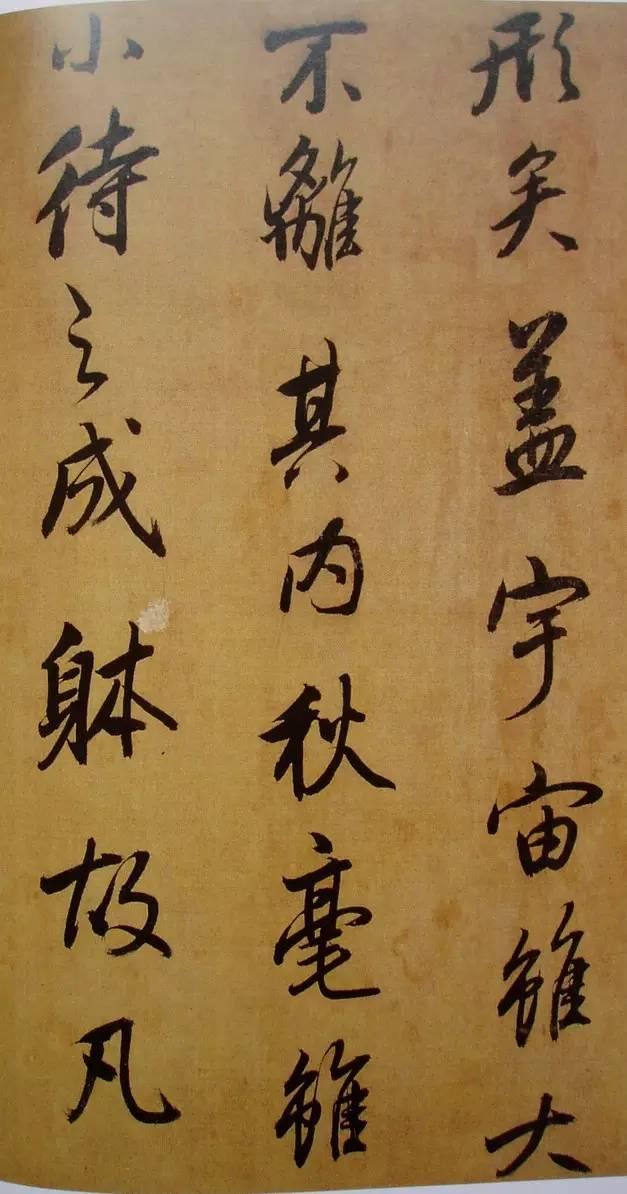 形矣盖宇宙雖大
不離其内秋毫雖
小待之成躰故凡